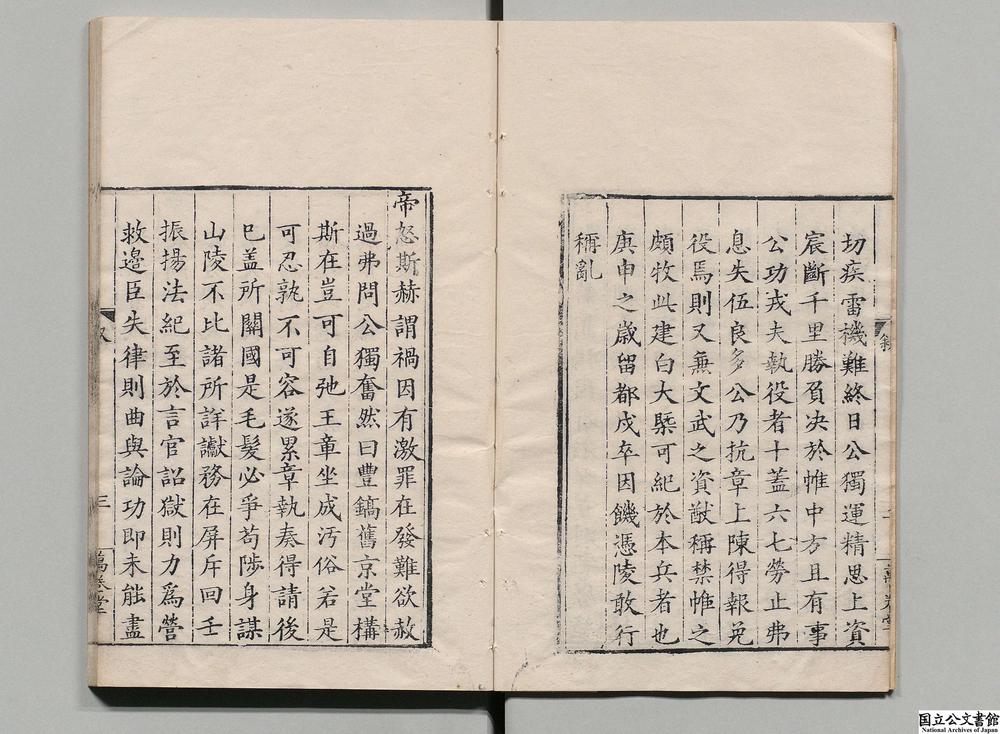 切疾雷機難終日公獨運精思上資
宸斷千里勝負决於帷中方且有事
公功戎夫執役者十蓋六七勞止弗
息失伍良多公乃抗章上陳得報免
役焉則又無文武之資猷稱禁帷之
頗牧此建白大槩可紀於本兵者也
庚申之歲留都戍卒因饑憑陵敢行
稱亂
帝怒斯赫謂禍因有激罪在發難欲赦
過弗問公獨奮然曰豐鎬舊京堂構
斯在豈可自弛王章坐成汚俗若是
可忍孰不可容遂累章執奏得請後
已盖所關國是毛髮必爭苟陟身謀
山陵不比諸所詳讞務在屏斥回壬
振揚法紀至於言官詔獄則力爲營
救邊臣失律則曲與論功即未能盡
叙
三
萬卷堂
国立公文書館
National Archives of Japan